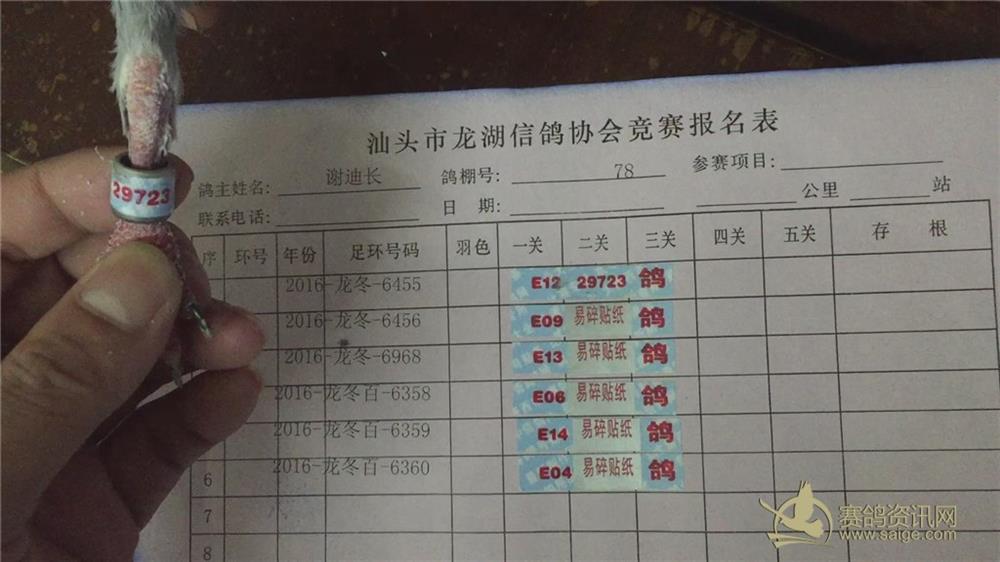 汕头市龙湖信鸽协会竞赛报名表
鸽主姓名: 谢迪长 鸽棚号: 78 参赛项目:
联系电话: 日 期: 公里 站
序 环号 年份 足环号码 羽色 一关 二关 三关 四关 五关 存 根
29723
2016-龙冬-6455 E12 29723 鸽
2016-龙冬-6456 E09 易碎贴纸 鸽
2016-龙冬-6968 E13 易碎贴纸 鸽
2016-龙冬百-6358 E06 易碎贴纸 鸽
2016-龙冬百-6359 E14 易碎贴纸 鸽
6 2016-龙冬百-6360 E04 易碎贴纸 鸽
7
8
赛鸽资讯网
www.saige.com